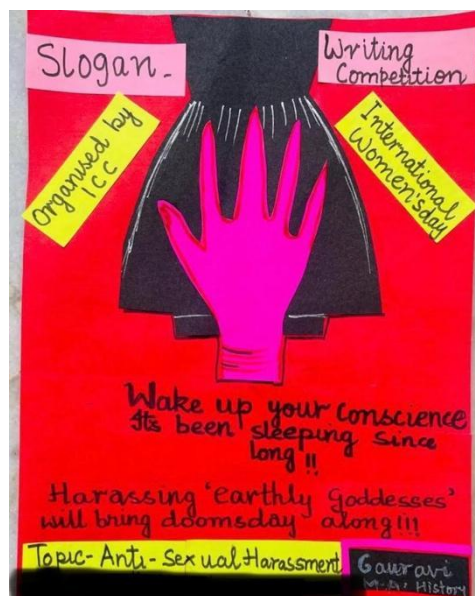 Slogan-
Writing
Competition
Organised by
ICC
International
Women'sday
Wake up your conscience
Its been sleeping since
long!!
Harassing 'earthly goddesses'
will bring doomsday along!!!
Topic- Anti- Sexual Harassment
Gauravi
M.A. History